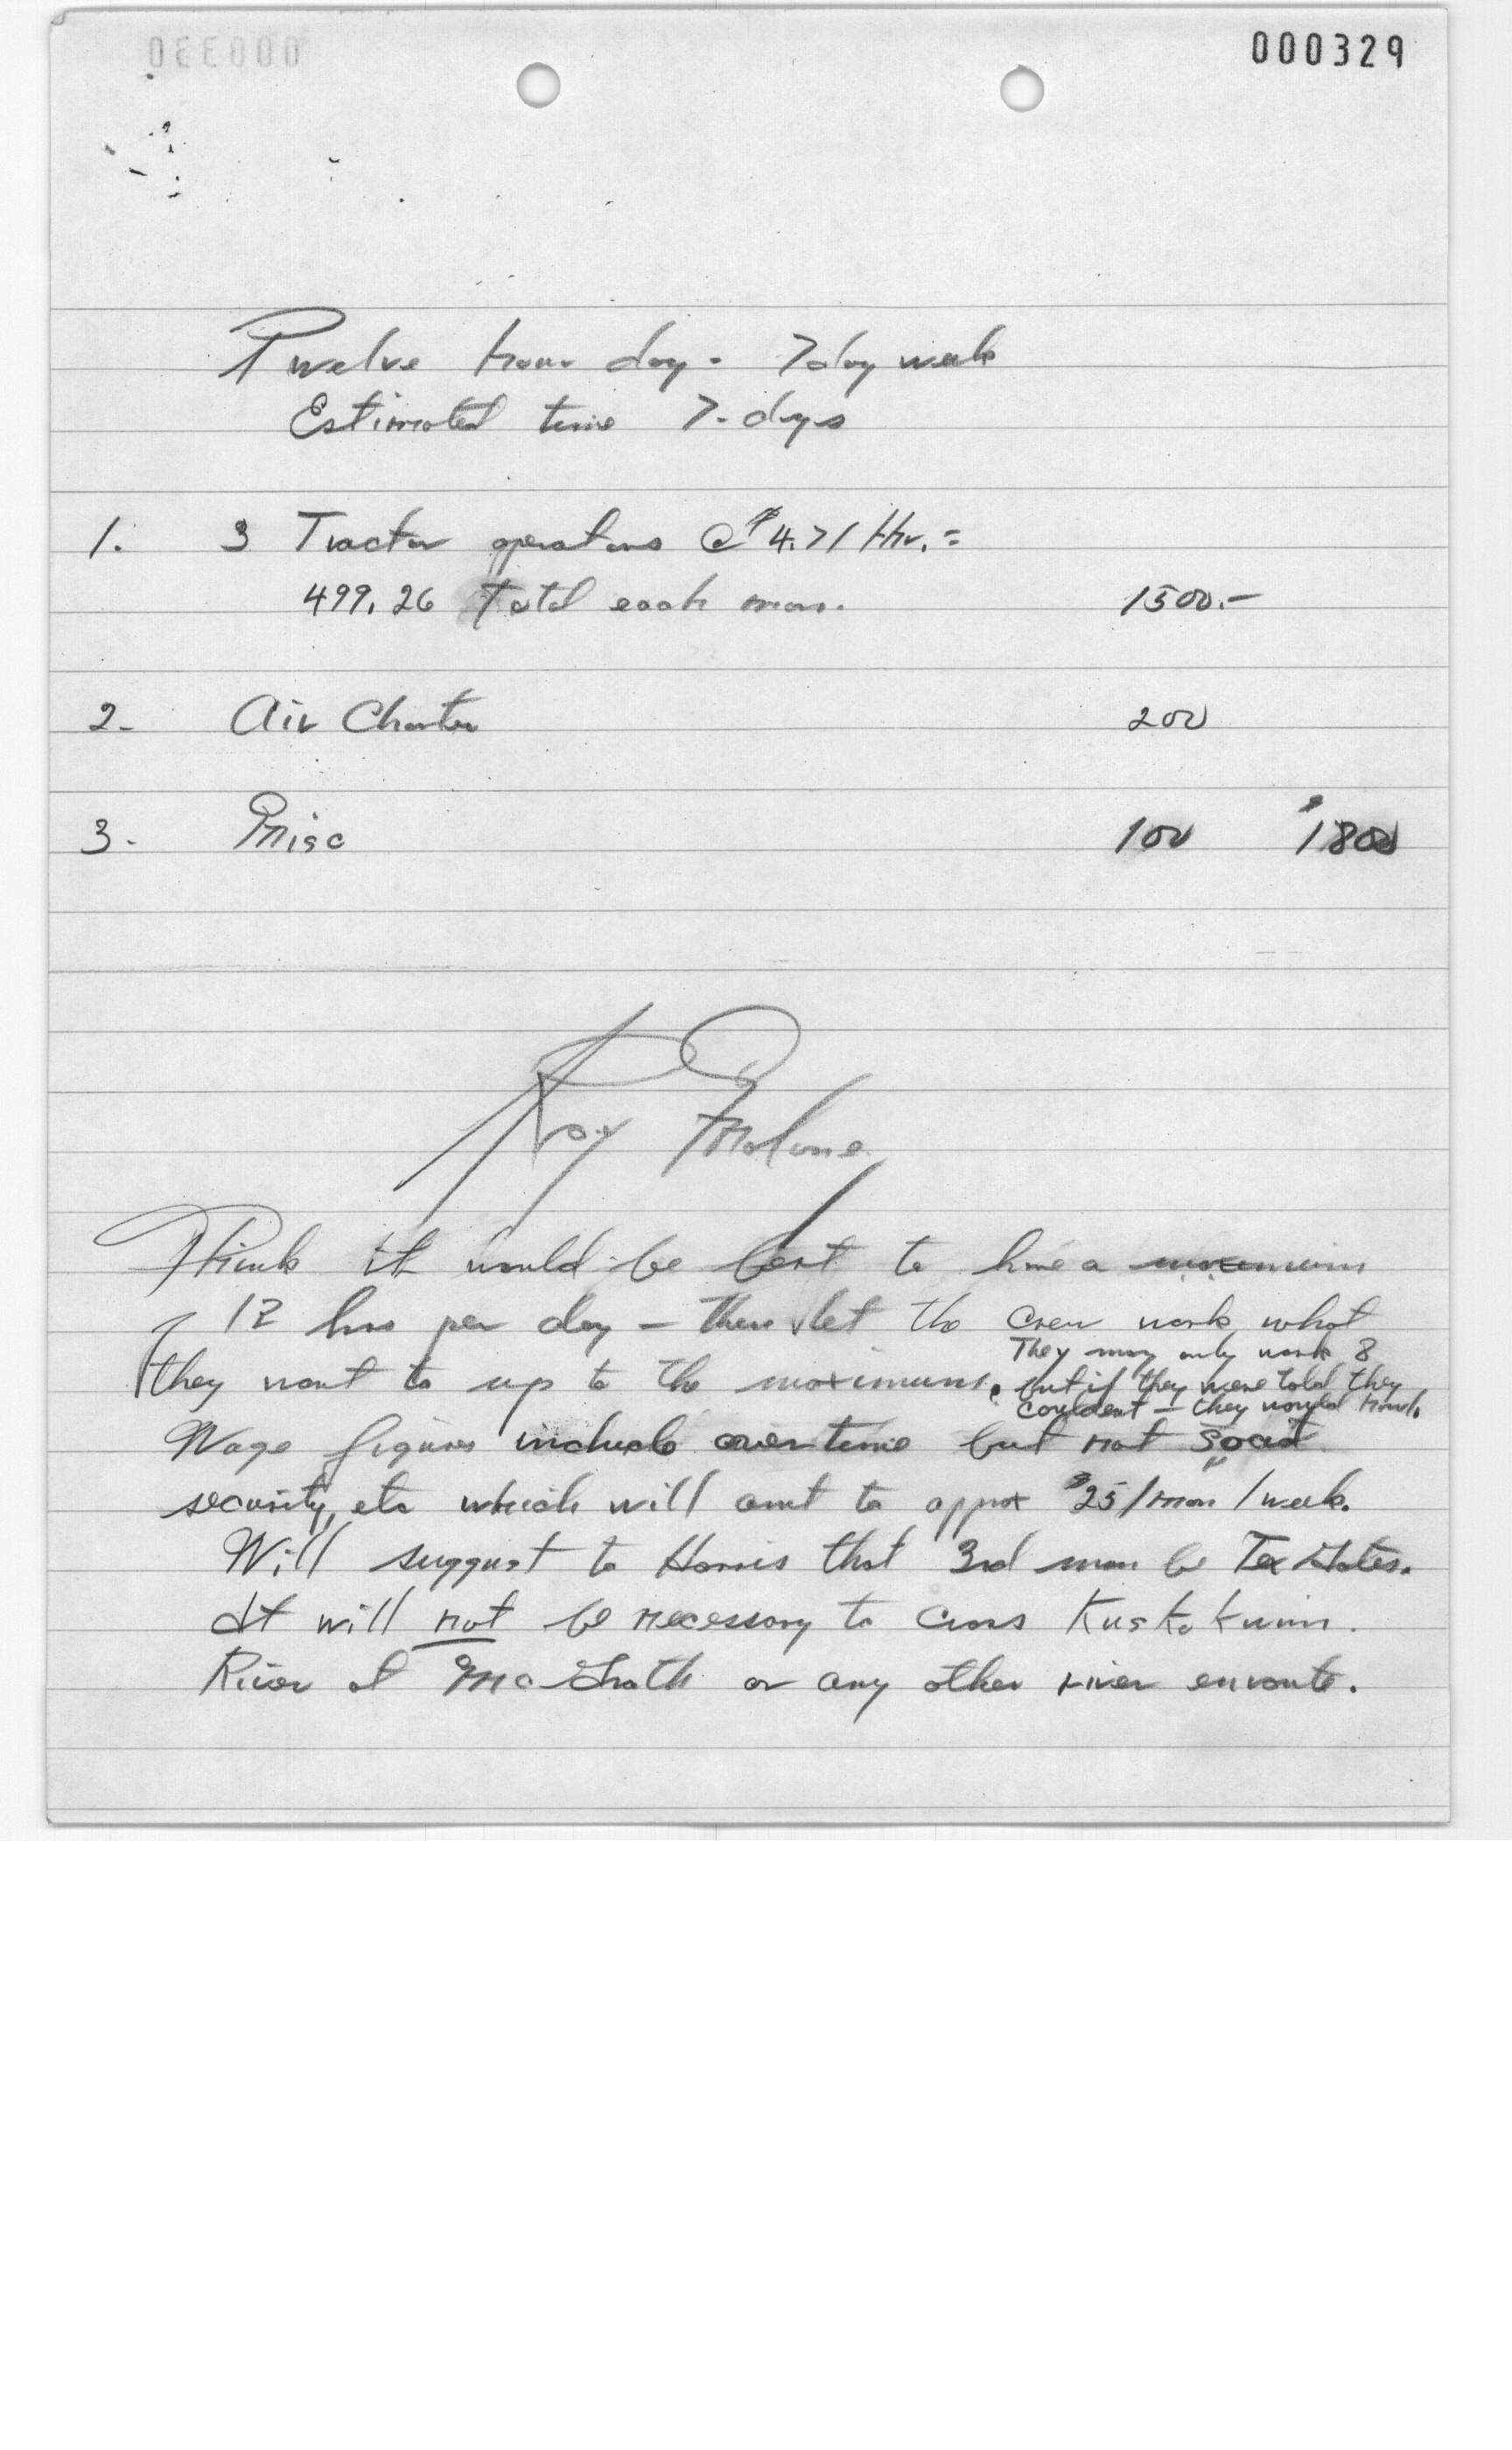 000329
Twelve hour day - 7 day week
Estimated time 7-days
1. 3 Tractor operators @ $4.71 Hr. =
499.26 total each man. 1500.-
2- Air Charter 200
3- Misc 100 $1800
Roy Malone
Think it would be best to have a maximum
of 12 hrs per day - then let the crew work what
They may only work 8
they want to up to the maximum. but if they were told they
couldent - they would howl.
Wage figures include overtime but not social
security, etc which will amt to approx $25/man/week.
Will suggest to Harris that 3rd man be Tex
It will not be necessary to cross Kuskokwim
River at McGrath or any other river enroute.